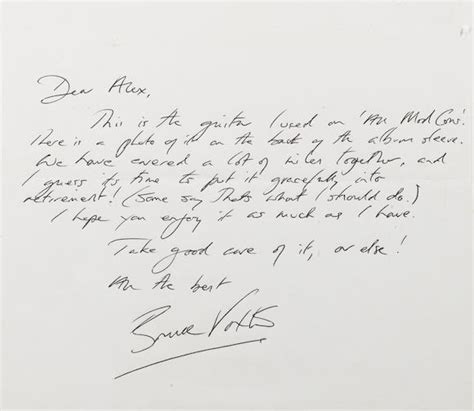 Dear Alex,
This is the guitar I used on 'All Mod Cons'.
There is a photo of it on the back of the album sleeve.
We have covered a lot of miles together, and
I guess it's time to put it gracefully into
retirement! (Some say that's what I should do.)
I hope you enjoy it as much as I have.
Take good care of it, or else!
All the best
Bruce Foxton